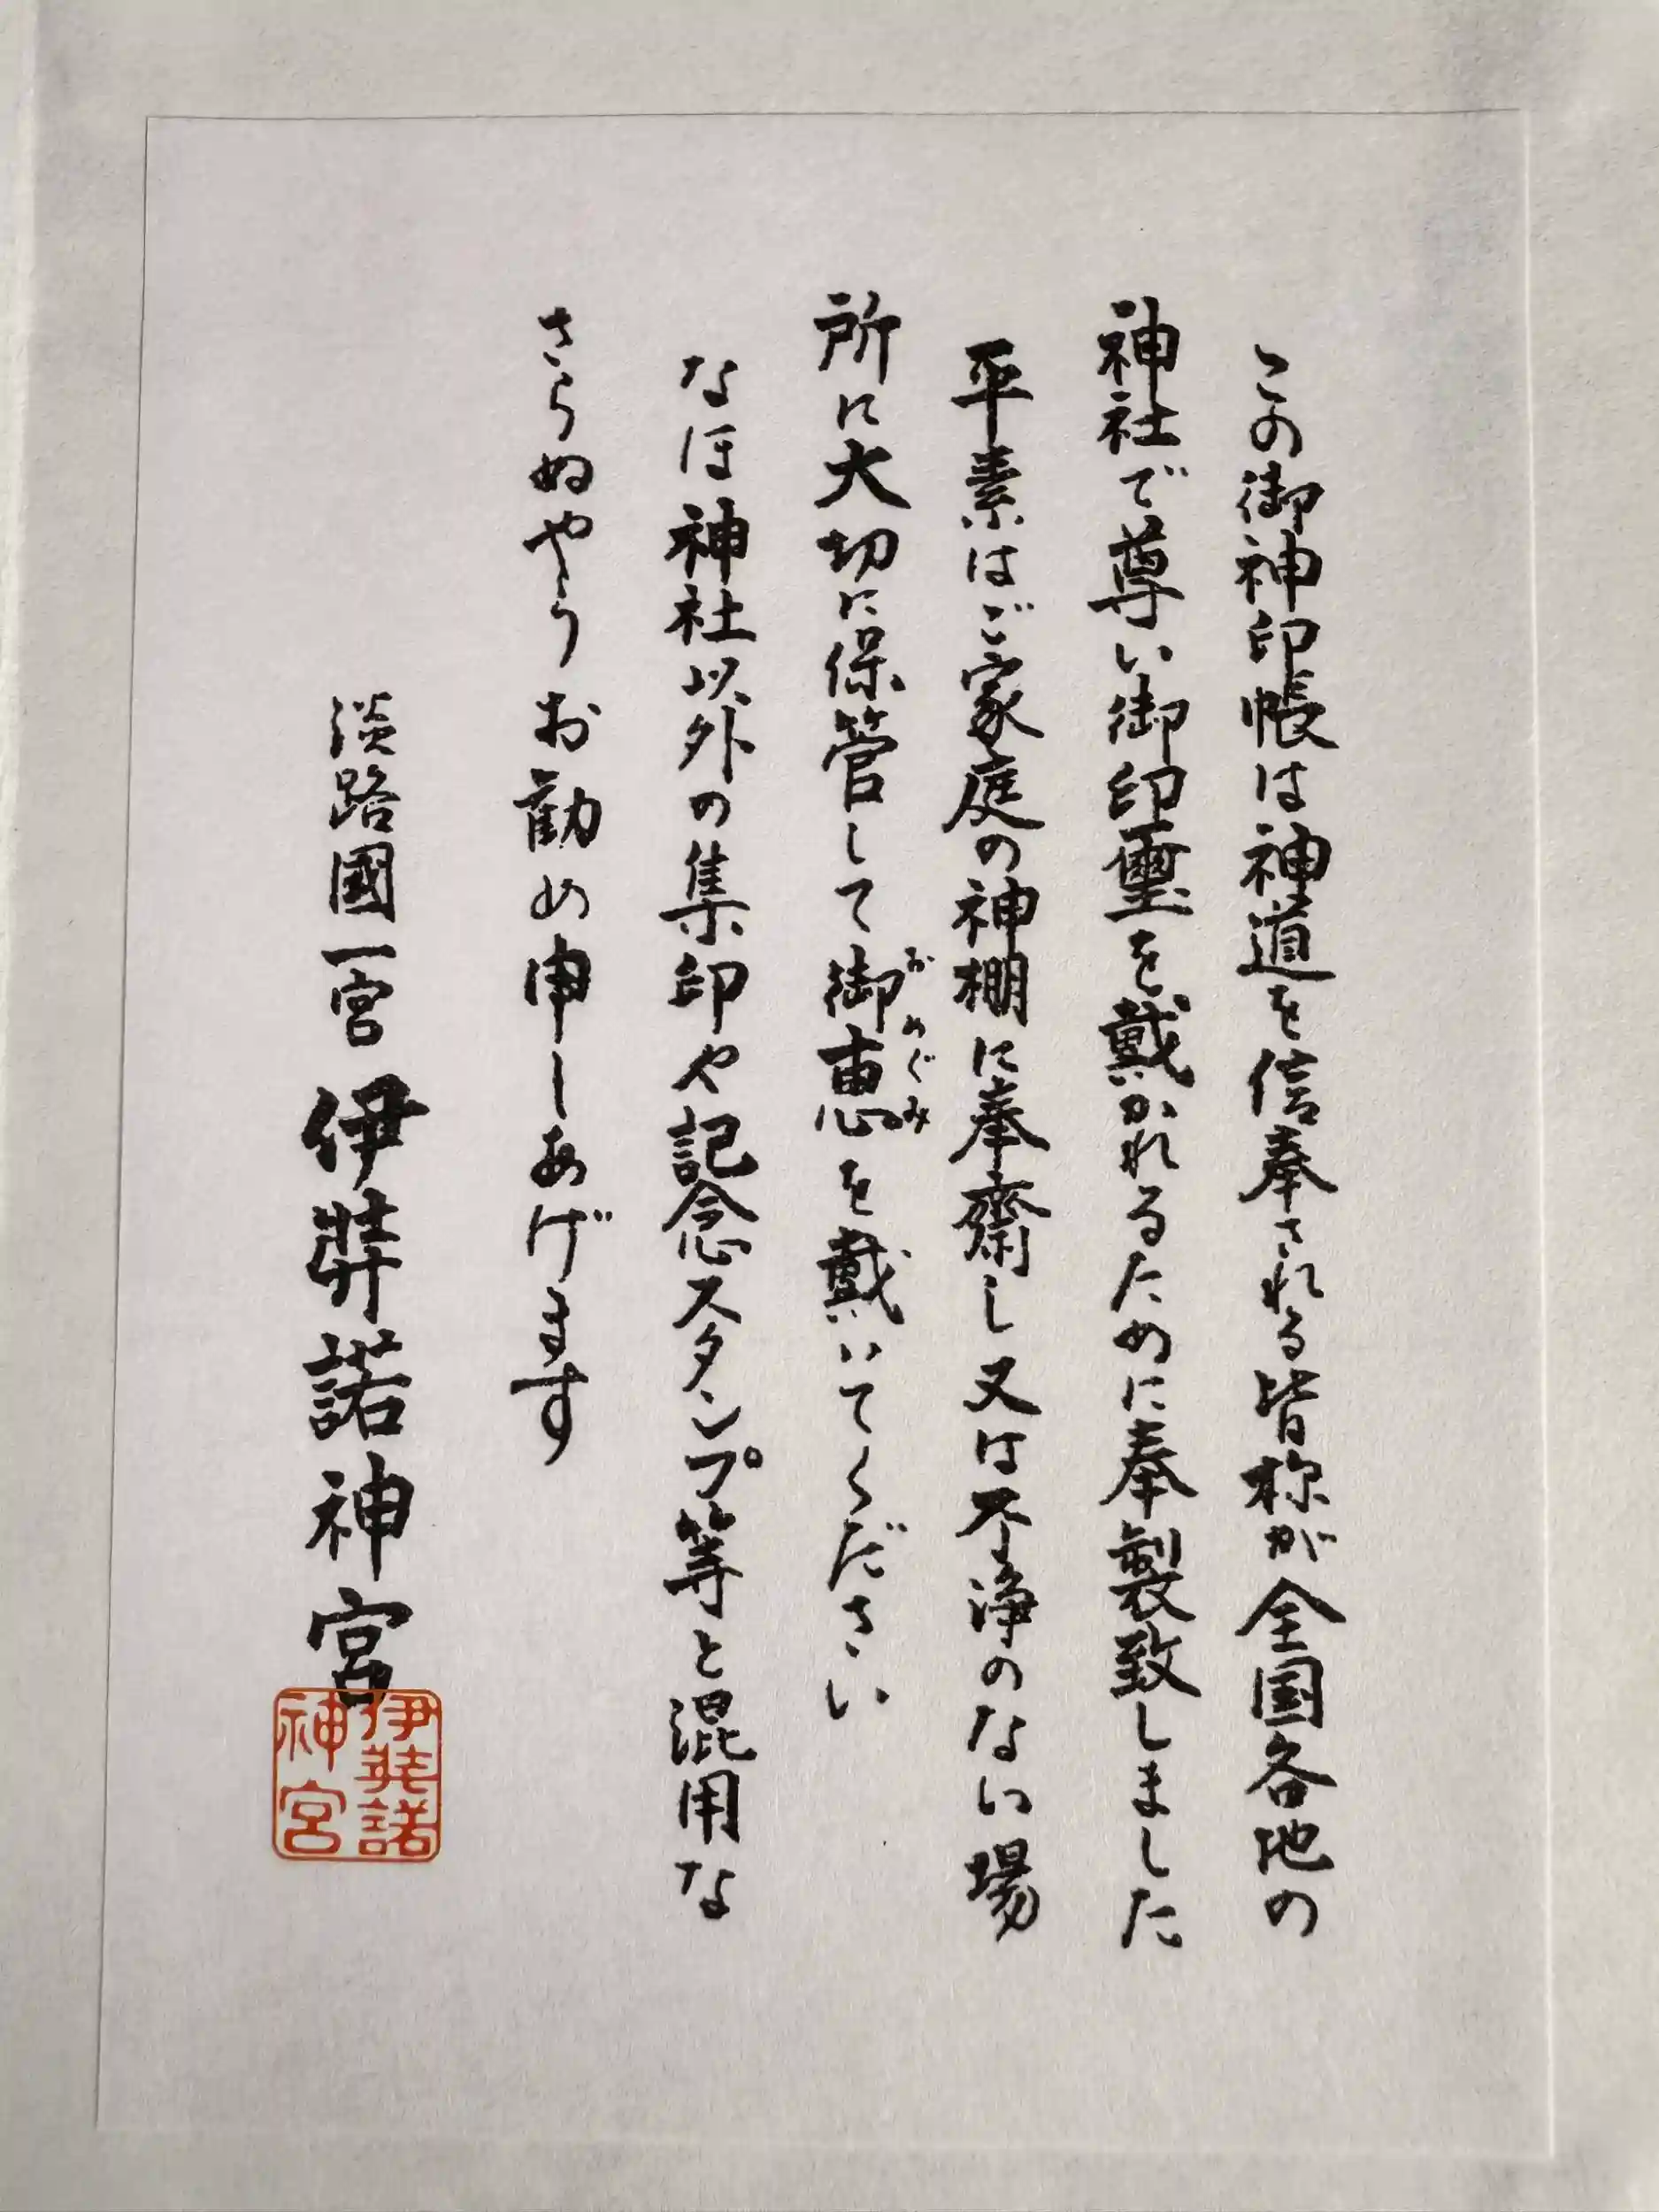 この御神印帳は神道を信奉される皆様が全国各地の
神社で尊い御印璽を戴かれるために奉製致しました
平素はご家庭の神棚に奉齋し又は不浄のない場
所に大切に保管して御恵を戴いてください
おめぐみ
なほ神社以外の集印や記念スタンプ等と混用な
さらぬやうお勧め申しあげます
淡路國一宮 伊弉諾神宮
伊弉諾
神宮